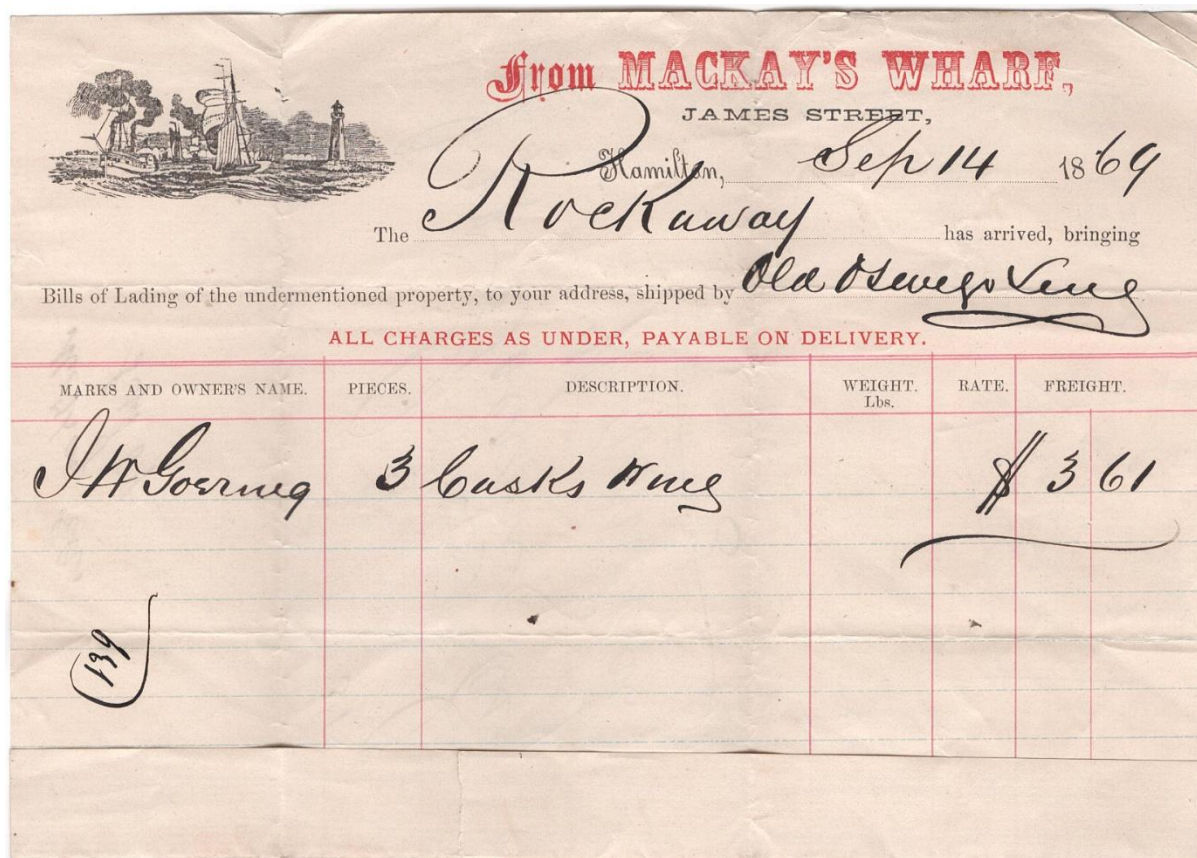 From MACKAY'S WHARF,
JAMES STREET,
Hamilton, Sep 14 1869
The Rockaway has arrived, bringing
Bills of Lading of the undermentioned property, to your address, shipped by Old Oswego Line
ALL CHARGES AS UNDER, PAYABLE ON DELIVERY.
MARKS AND OWNER'S NAME. PIECES. DESCRIPTION. WEIGHT. Lbs. RATE. FREIGHT.
J W Goering 3 Casks Wine $ 3 61
139